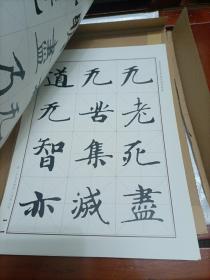 无老死盡
无苦集滅
道无智亦